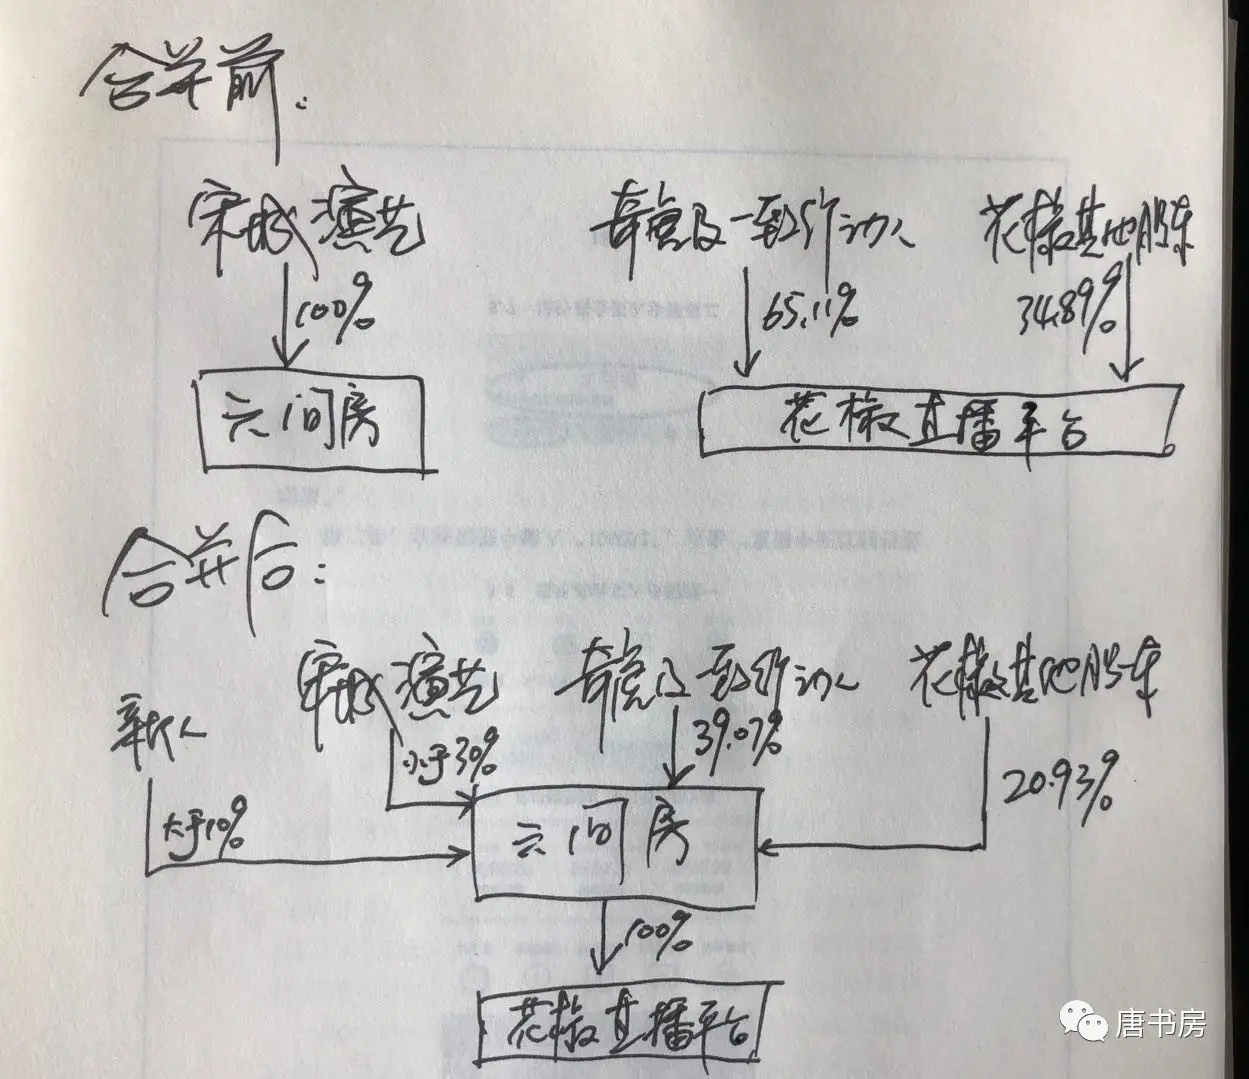 合并前:
宋城演艺 奇虎及一致行动人 花椒其他股东
100% 65.11% 34.89%
六间房 花椒直播平台
合并后:
新人 宋城演艺 奇虎及一致行动人 花椒其他股东
大于10% 小于30% 39.07% 20.93%
六间房
100%
花椒直播平台
唐书房